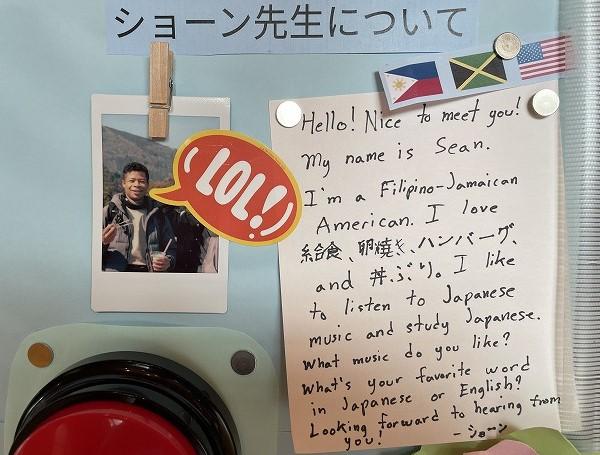 ショーン先生について
LOL!
Hello! Nice to meet you!
My name is Sean.
I'm a Filipino-Jamaican
American. I love
給食、卵焼き、ハンバーグ、
and 丼ぶり。I like
to listen to Japanese
music and study Japanese.
What music do you like?
What's your favorite word
in Japanese or English?
Looking forward to hearing from
you!
-ショーン